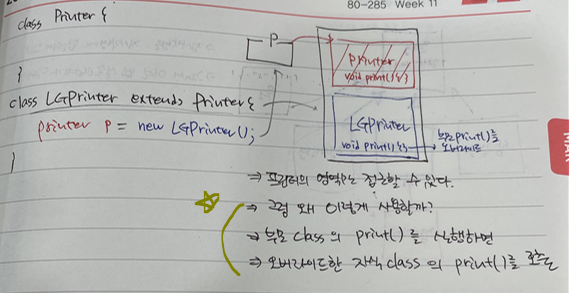 80-285 Week 11
class Printer {
}
class LGPrinter extends Printer {
printer p = new LGPrinter();
}
P
printer
void print() {}
LGPrinter
void print() {}
부모 print()를
오버라이드
⇒ 프린터의 영역만 접근할 수 있다.
⇒ 그럼 왜 이렇게 사용할까?
⇒ 부모 class의 print()를 실행하면
⇒ 오버라이드한 자식 class의 print()를 호출